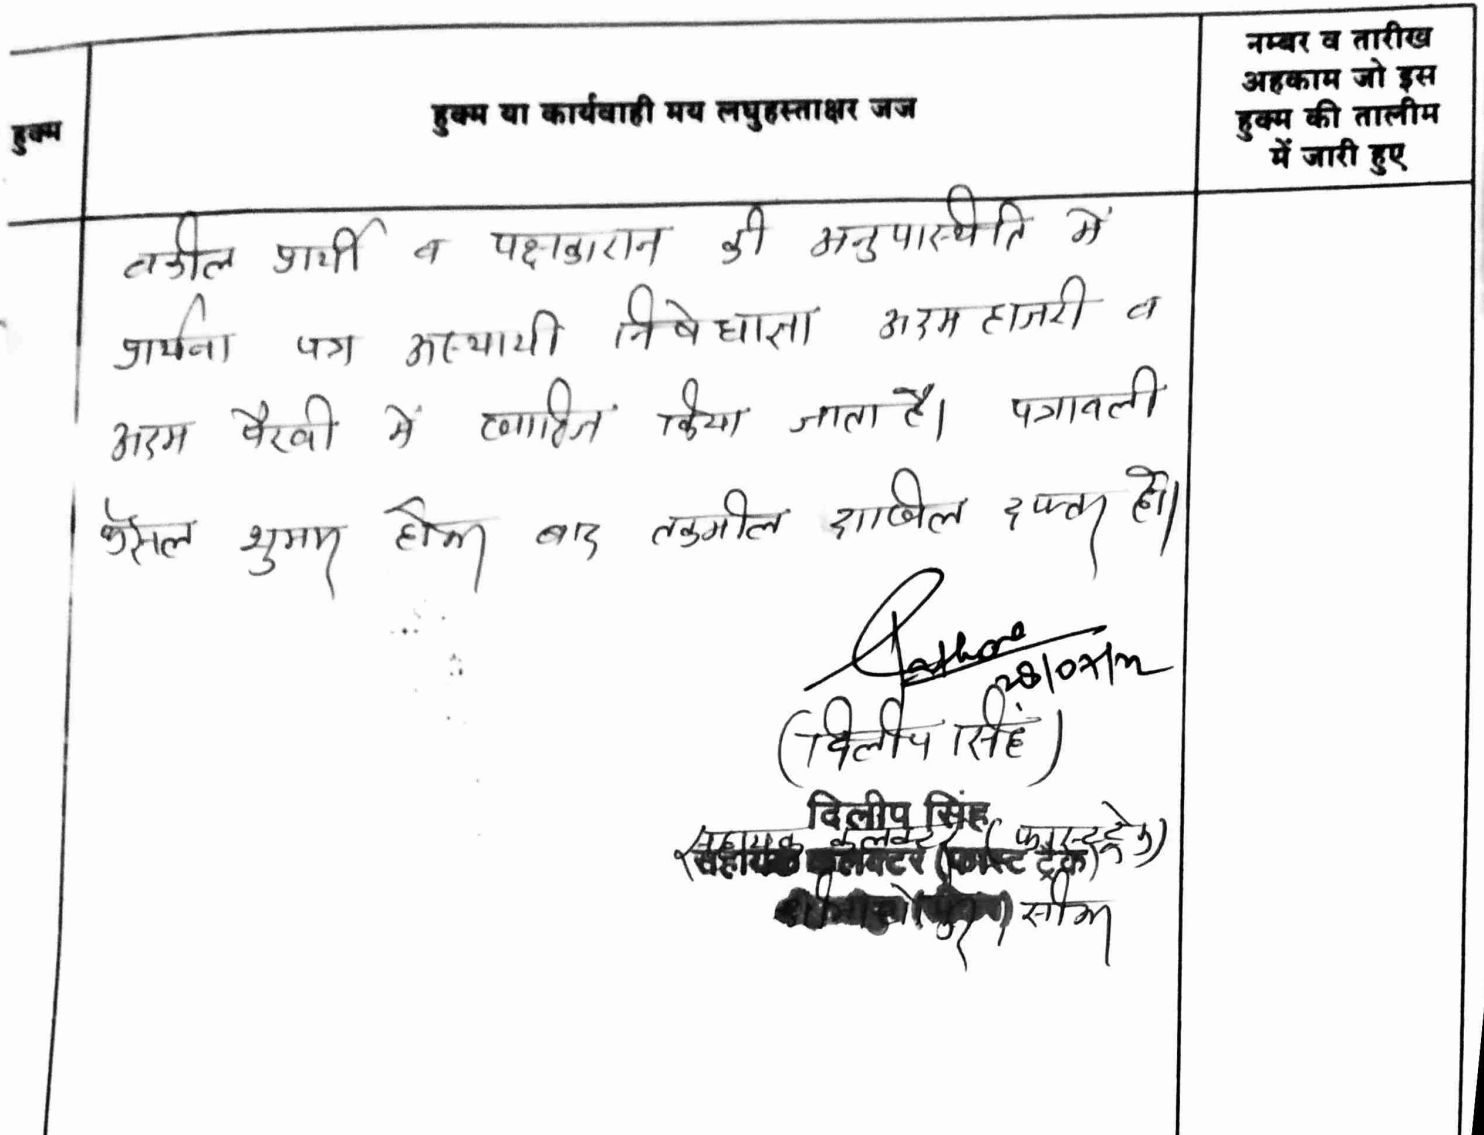 हुक्म
हुक्म या कार्यवाही मय लघुहस्ताक्षर जज
नम्बर व तारीख
अहकाम जो इस
हुक्म की तालीम
में जारी हुए
वकील प्रार्थी व पक्षकारान की अनुपास्थिति में
प्रार्थना पत्र अस्थायी निषेधाज्ञा अदम हाजरी व
अदम पैरवी में खारिज किया जाता है। पत्रावली
फैसल शुमार होकर बाद तकमील दाखिल दफ्तर हो।
Rathore
28/07/
(दिलीप सिंह)
दिलीप सिंह
सहायक कलक्टर (फास्ट ट्रेक)
सहायक कलक्टर (फास्ट ट्रैक)
सीकर